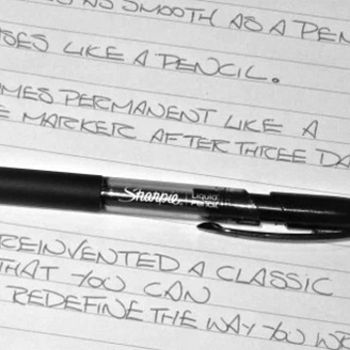 AS SMOOTH AS A PEN
LIKE A PENCIL.
PERMANENT LIKE A
MARKER AFTER THREE DA
Sharpie Liquid
Pencil
REINVENTED A CLASSIC
THAT YOU CAN
REDEFINE THE WAY YOU